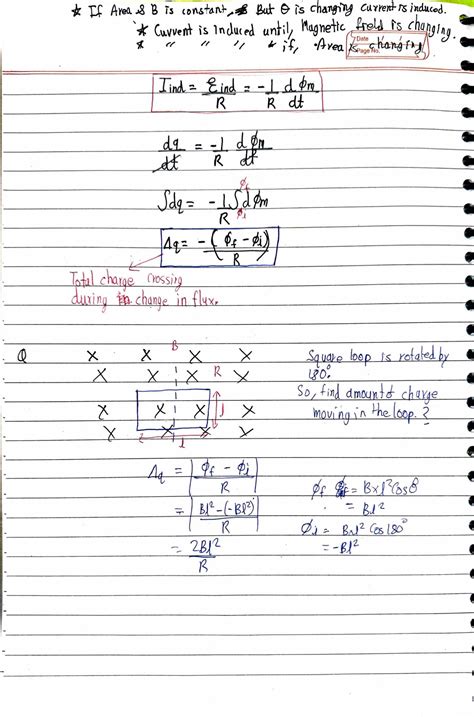 * If Area & B is constant, But θ is changing current is induced.
* Current is Induced until, Magnetic field is changing.
* " " " " if, Area is changing.
Date
Page No.
I_ind = ε_ind/R = -1/R dϕm/dt
dq/dt = -1/R dϕm/dt
∫dq = -1/R ∫_ϕi^ϕf dϕm
Δq = -(ϕf - ϕi)/R
Total charge crossing
during change in flux.
Q
B
x x x x
x x x R x
x x x x l
x x x x
l
Square loop is rotated by
180°.
So, find amount of charge
moving in the loop. ?
Δq = |ϕf - ϕi / R|
= |Bl² - (-Bl²) / R|
= 2Bl²/R
ϕf = B x l² cos 0°
= Bl²
ϕi = Bxl² Cos 180°
= -Bl²